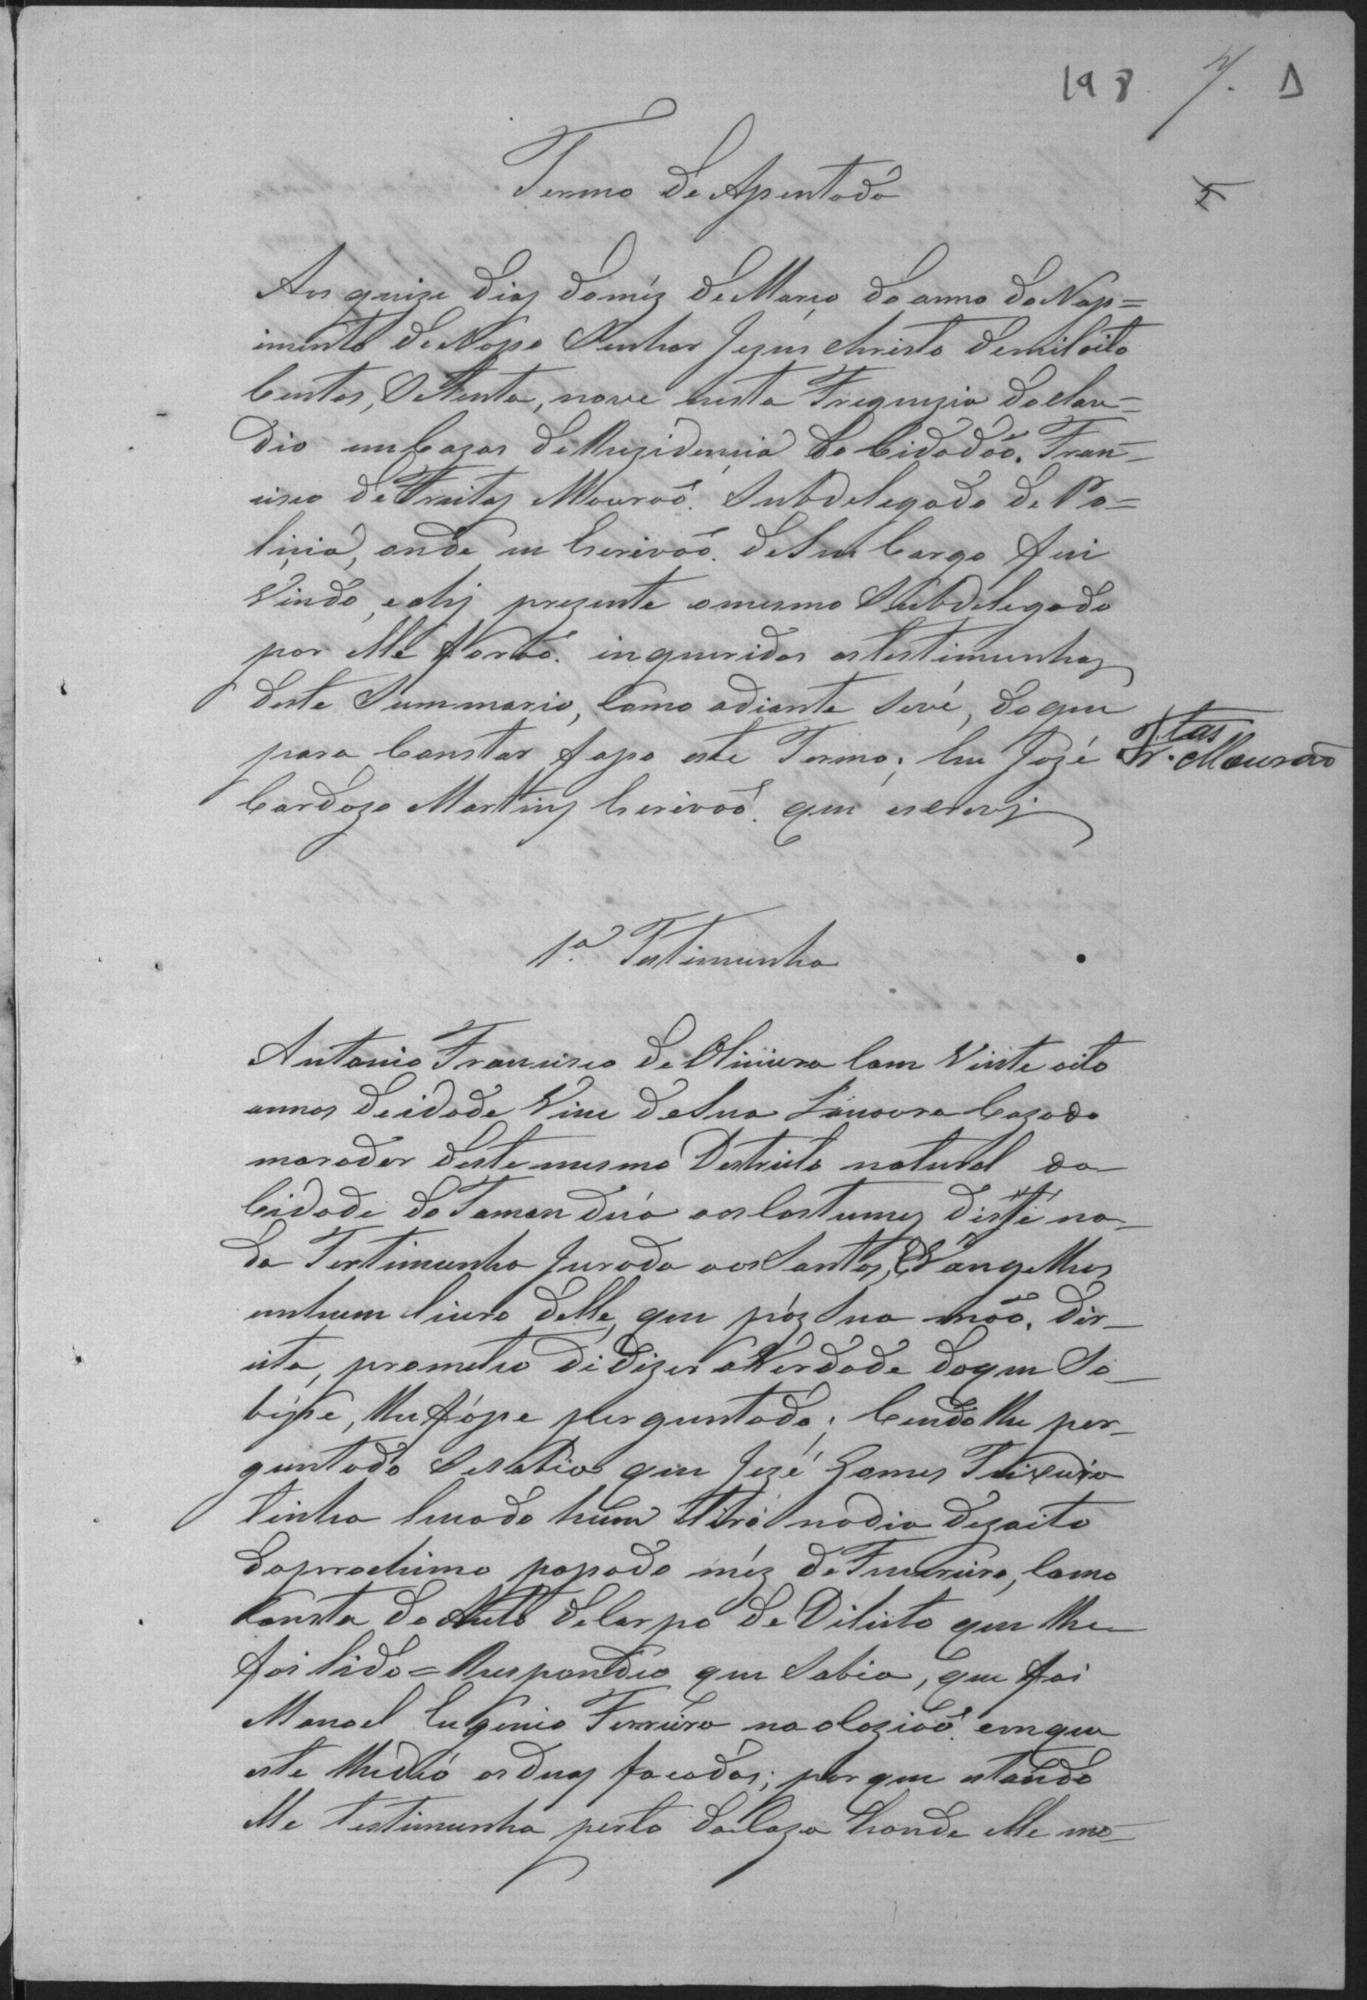 198 7. D
Termo de Apentada
Aos quinze dias do mêz de Março do anno do Nas=
imento de Nosso Senhor Jezus Christo de mil oito
Centos, Setenta, nove nesta Freguezia do Clau=
dio em Cazas de Rezidencia do Cidadão. Fran=
cisco de Freitas Mourão. Subdelegado de Po=
licia, onde eu Escrivão. de Seu Cargo fui
Vindo, e ahi prezente o mesmo Subdelegado
por elle forão. inqueridas as testimunhas
deste Summario, Como adiante Sevé, do que
para Constar faço este Termo; Eu Jozé
Frtas Mourão
Cardozo Martins Escrivão. que escrevi
1ª Testimunha
Antonio Francisco de Oliveira Com Vinte oito
annos de idade Vive de Sua Lavoura Cazado
morador deste mesmo Destricto natural da
Cidade do Tamanduá aos Costumes disse na_
da Testimunha Jurada aos Santos Evangelhos
em hum Livro delle, que pôz Sua mão. dir_
eita, prometeo de dizer a Verdade do que So_
bésse, lhe fósse perguntado; Cendo lhe per_
guntado Se sabia que Jozé Gomes Teixeira
tinha levado hum tiro no dia dezoito
do prochimo passado mêz de Fevereiro, Como
Consta do Auto de Corpo de Dilicto que lhe_
foi lido = Respondeo que Sabia, que foi
Manoel Eugenio Ferreira na ocazião. em que
este lhe deo as duas facadas; por que estando
elle testimunha perto da Caza honde elle mo_